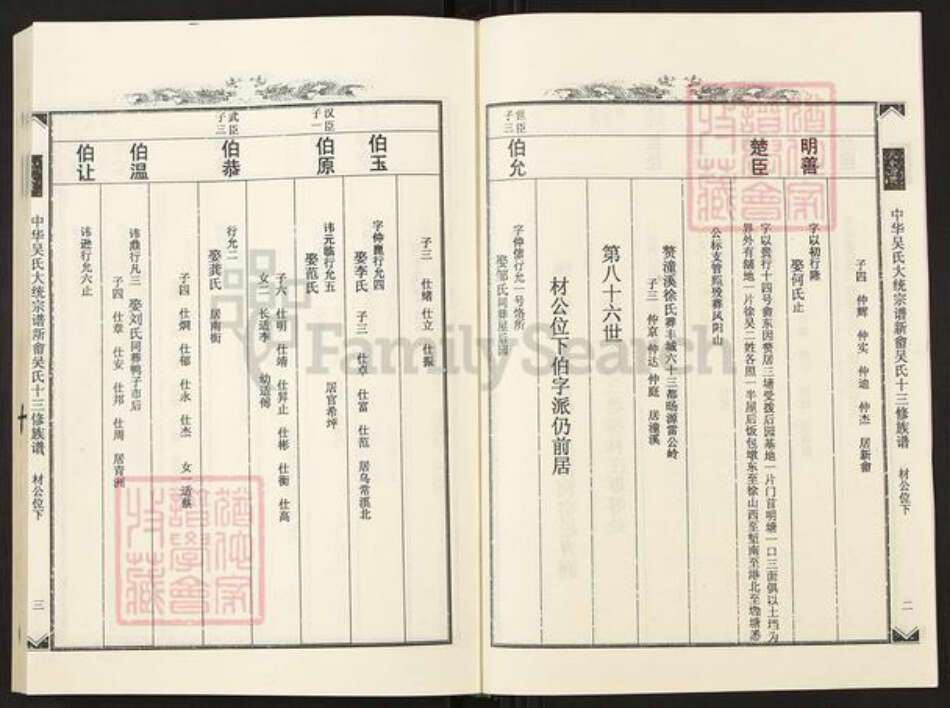 中华吴氏大统宗谱新畲吴氏十三修族谱
材公位下
二
子四 仲辉 仲实 仲迪 仲杰 居新畲
明善
字以初行隆
娶何氏止
楚臣
字以贵行十四号畲东因赘居三塘受拨后园基地一片门首明塘一口三面俱以土垱为
界外有储地一片徐吴二姓各照一半屋后饭包墩东至徐山西至堑南至港北至
公标支管照
赘潼溪徐氏葬玉城六十三都旸源雷公岭
子三 仲京 仲达 仲庭 居潼溪
第八十六世
材公位下伯字派仍前居
世臣
子三
伯允
字仲儒行允一号恪所
娶邹氏同葬屋
子三 仕绪 仕立 仕振
伯玉
字仲 行允四
娶李氏 子三 仕卓 仕富 仕范 居乌常溪北
汉臣
子一
伯原
讳元 行允五 居官希坪
娶范氏
子六 仕明 仕靖 仕昇止 仕彬 仕衡 仕高
女二 长适李 幼适傅
武臣
子三
伯恭
行允二
娶龚氏 居南街
子四 仕烱 仕郁 仕永 仕杰 女一适蔡
伯温
讳鼎行凡三 娶刘氏同葬鸭子市后
子四 仕章 仕安 仕邦 仕周 居青洲
伯让
讳逊行允六止
中华吴氏大统宗谱新畲吴氏十三修族谱
材公位下
三
FamilySearch